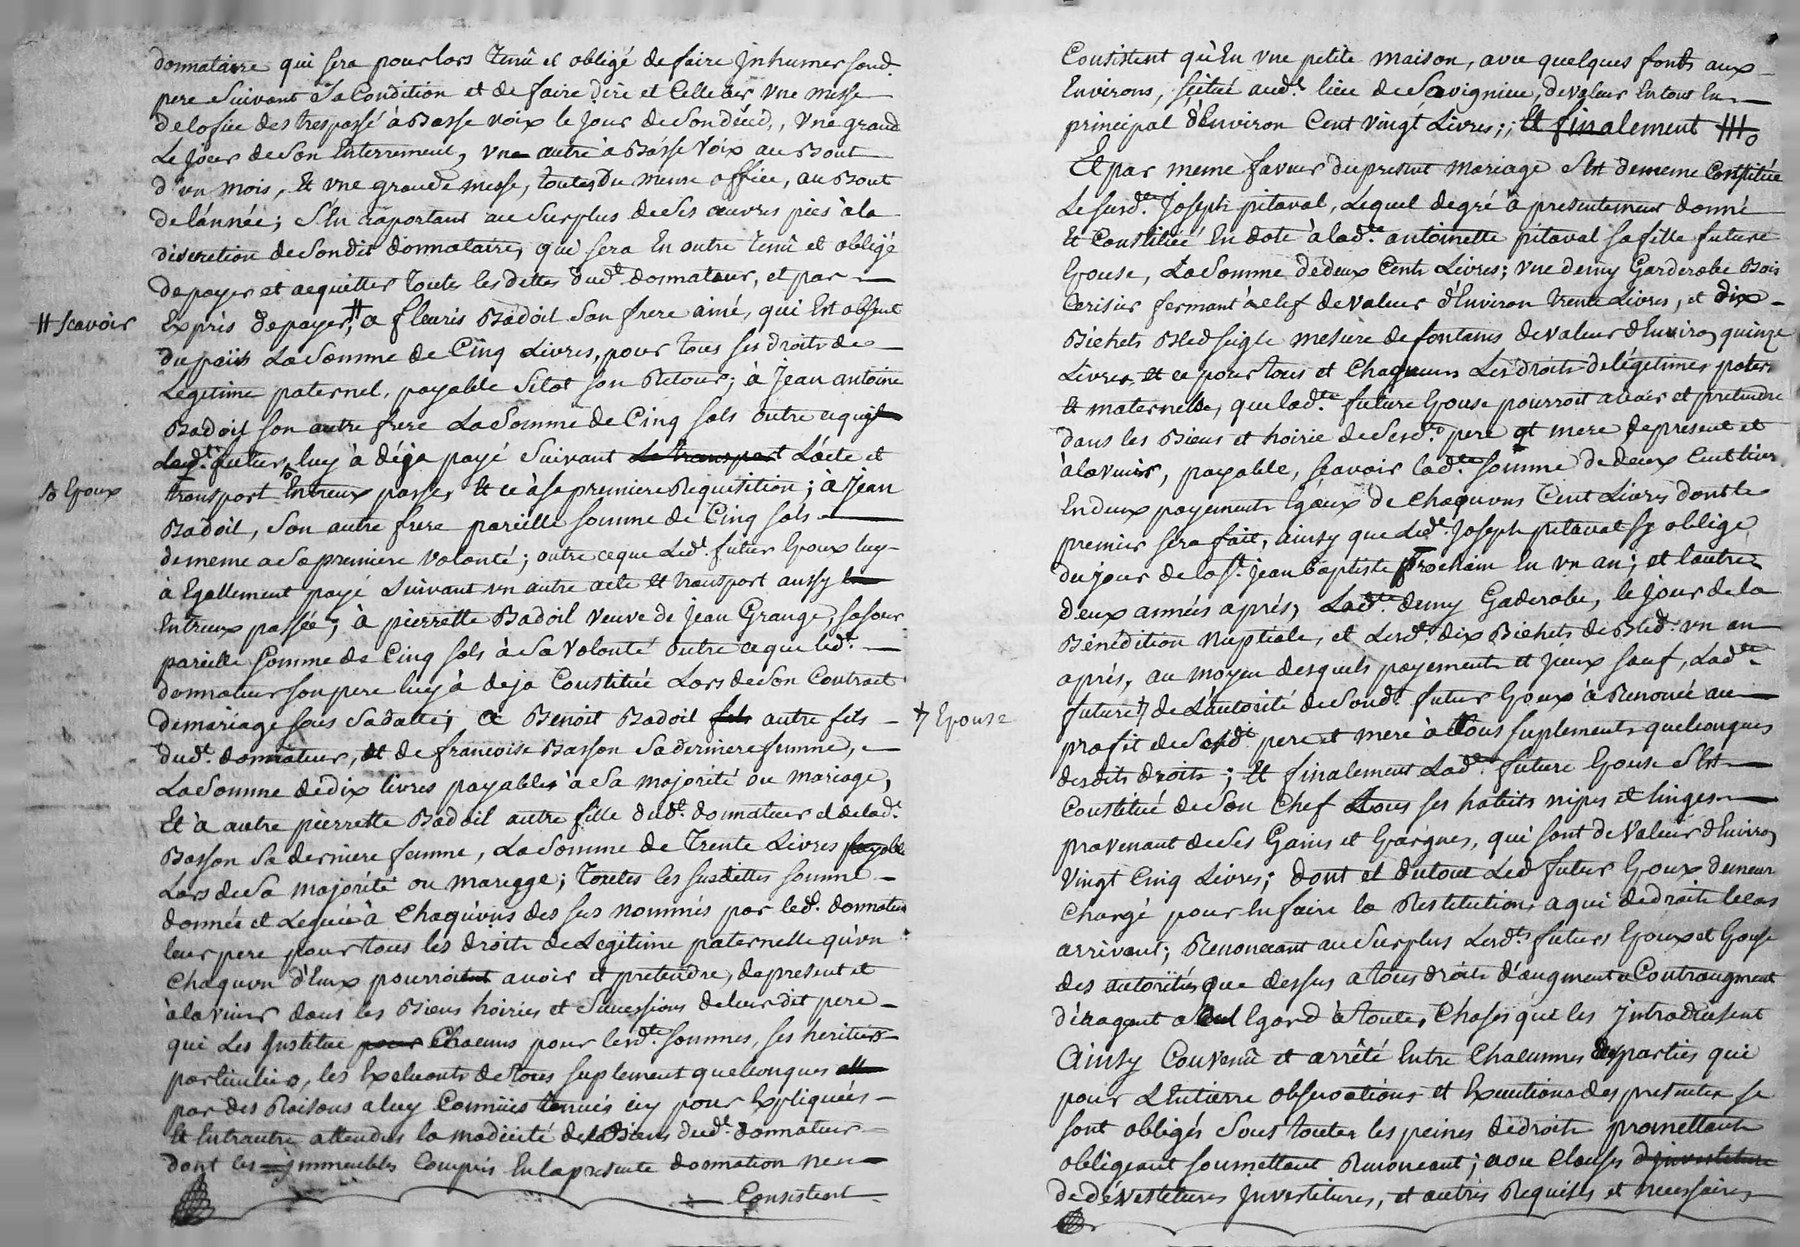 donnataire qui sera pour lors tenû et obligé de faire Jnhumer sond.
pere suivant sa Condition et de faire dire et Cellebrer vne messe
de lofice des trespassé à Basse voix le jour de son décéd, vne grand
Le jour de son Enterrement, vne autre à Basse voix au Bout
d'un mois, Et vne grande messe, toutes du meme office, au Bout
de l'année; s'En raportant au surplus de ses œuvres pies à la
discretion de son dit donnataire, qui sera En outre tenû et obligé
de payer et acquitter toutes les dettes dud.t donnateur, et par
Exprés de payer, # a fleuris Badoil son frere ainé, qui Est absent
# scavoir
du païs La somme de Cinq Livres, pour tous ses droits de
Legitime paternel, payable sitot son Retour; à Jean antoine
Badoil son autre frere La somme de Cinq sols outre ce qui
Led.t futur luy à déja payé suivant Le transport L'acte et
♭ Epoux
transport Entreux passé, Et ce à sa premiere Requisition; à Jean
Badoil, son autre frere pareille somme de Cinq sols
de meme a sa premiere volonté; outre ce que Led.t futur Epoux luy
à Egallement payé suivant un autre acte et transport aussy
Entreux passée; à pierrette Badoil veuve de Jean Grange, sa sœur
pareille somme de Cinq sols à sa volonté outre ce que led.t
donnateur son pere luy à deja Constitué Lors de son Contract
de mariage sous sa datte; a Benoit Badoil fils autre fils
dud.t donnateur, et de francoise Basson sa derniere femme,
La somme de dix livres payables à sa majorité ou mariage,
Et à autre pierrette Badoil autre fille dud.t donnateur et de lad.e
Basson sa derniere femme, La somme de Trente Livres payable
Lors de sa majorité ou mariage; Toutes les susdittes somme
donnés et Leguée à Chaqu'vns des sus nommés par led. donnateur
leur pere pour tous les droits de Legitime paternelle qu'vn
Chaqu'vn d'Eux pourroient avoir et pretendre, de present et
à lavenir dans les Biens hoiries et successions de leur dit pere
qui Les Jnstitue pour Chacuns pour lesd.tes sommes, ses heritiers
particuliers, les Excluants de tous suplement quelconques
par des Raisons a luy Connües tenues icy pour Expliquées
Et Entrautre attendus la modicité des Biens dud.t donnateur
dont les immeubles Compris En la presente donnation nen
Consistent
Consistent qu'En vne petite maison, avec quelques fonds aux
Environs, scitué aud.t lieu de Savignieu, de valeur En tout En
principal d'Environ Cent vingt Livres; Et finalement
Et par meme faveur du present mariage s'Est de meme Constitué
Le susd.t Joseph pitaval, Lequel de gré à presentement donné
Et Constitué En dote à lad.te antoinette pitaval sa fille future
Epouse, La somme de deux Cents Livres; vne demy Garderobe Bois
Cerisier fermant à clef de valeur d'Environ trente Livres, et dix
Bichets Bled seigle mesure de fontanis de valeur d'Environ quinze
Livres, Et ce pour tous et Chaquuns Les droits de légitimes patern
Et maternelle, que lad.te future Epouse pourroit avoir et pretendre
dans les Biens et hoirie de sesd.ts pere et mere de present et
à lavenir, payable, scavoir lad.te somme de deux Cent livres
En deux payements Egaux de Chaqu'uns Cent Livres dont le
premier sera fait, ainsy que Led.t Joseph pitaval s'y oblige
du jour de la S.t jean baptiste prochain En un an; et lautre
deux années aprés, Lad.te demy Gaderobe, le jour de la
Bénédition nuptiale, et Lesd.ts dix Bichets de Bled. un an
aprés, au moyen desquels payements et jceux sauf, Lad.te
future de L'autorité de sond.t futur Epoux à Renoncé au
✝ Epouse
profit de sesd.ts pere et mere à tous suplements quelconques
desdits droits; Et finalement Lad.te future Epouse s'Est
Constitué de son Chef tous ses habits nipes et linges
provenant de ses Gains et Epargnes, qui sont de valeur d'Environ
Vingt Cinq Livres; dont et dutout Led futur Epoux demeure
Chargé pour En faire la Restitution a qui de droit le cas
arrivant; Renoncant au surplus Lesd.ts futurs Epoux et Epouse
des autorités que dessus a tous droits d'augment et Contraugment
dérogeant a cet Egard à toutes Choses que les Jntroduisent
Ainsy Convenû et arrêté Entre Chacunnes des parties qui
pour L'Entiere observations et Executions des presentes se
sont obligés sous toutes les peines de droit promettant
obligeant soumettant Renoncant; avec Clauses d'jnvestiture
de dévestitures Jnvestitures, et autres Requises et necessaires